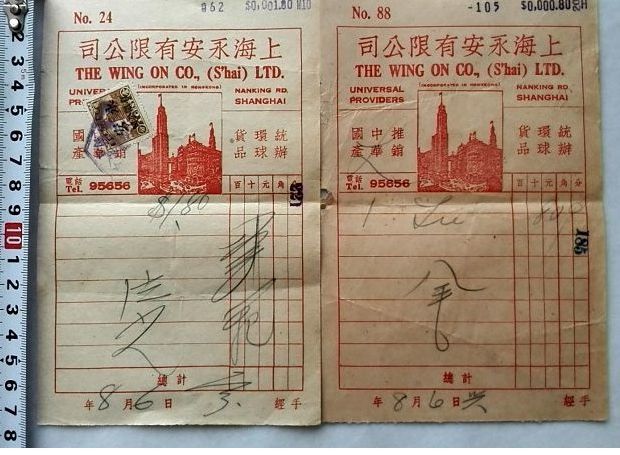 No. 24
962 $0,001.80 M10
司公限有安永海上
THE WING ON CO., (S'hai) LTD.
(INCORPORATED IN HONGKONG)
UNIVERSAL
NANKING RD.
SHANGHAI
國
產
貨環統
品球辦
電話
Tel. 95656
百十元角分
221
$1.80
總計
年 8 月 6 日
經手
No. 88
-105 $0,000.80
司公限有安永海上
THE WING ON CO., (S'hai) LTD.
(INCORPORATED IN HONGKONG)
UNIVERSAL
PROVIDERS
NANKING RD.
SHANGHAI
國中推
產華銷
貨環統
品球辦
電話
Tel. 95656
百十元角分
185
1
總計
年 8 月 6 日
經手
1 2 3 4 5 6 7 8 9 10 1 2 3 4 5 6 7 8